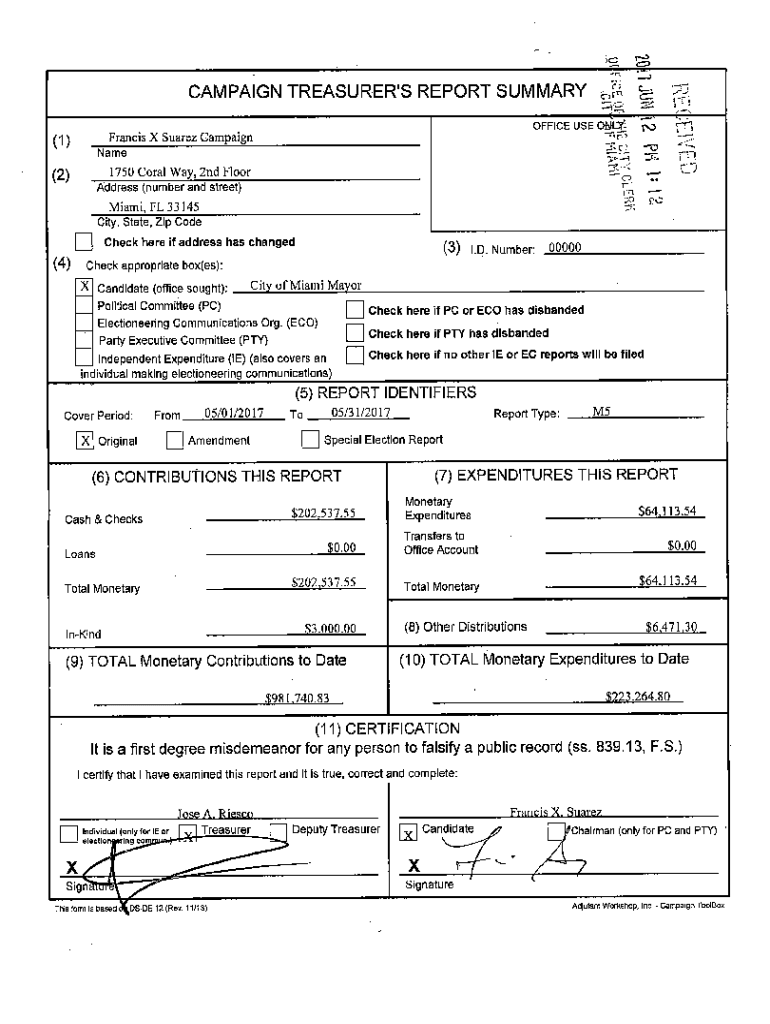 RECEIVED
2017 JUN 12 PM 1:12
OFFICE OF THE CITY CLERK
CITY OF MIAMI
CAMPAIGN TREASURER'S REPORT SUMMARY
OFFICE USE ONLY
(1) Francis X Suarez Campaign
Name
(2) 1750 Coral Way, 2nd Floor
Address (number and street)
Miami, FL 33145
City, State, Zip Code
Check here if address has changed
(3) I.D. Number: 00000
(4) Check appropriate box(es):
X Candidate (office sought): City of Miami Mayor
Political Committee (PC) Check here if PC or ECO has disbanded
Electioneering Communications Org. (ECO)
Party Executive Committee (PTY) Check here if PTY has disbanded
Independent Expenditure (IE) (also covers an Check here if no other IE or EC reports will be filed
individual making electioneering communications)
(5) REPORT IDENTIFIERS
Cover Period: From 05/01/2017 To 05/31/2017 Report Type: M5
X Original Amendment Special Election Report
(6) CONTRIBUTIONS THIS REPORT (7) EXPENDITURES THIS REPORT
Cash & Checks $202,537.55 Monetary Expenditures $64,113.54
Loans $0.00 Transfers to Office Account $0.00
Total Monetary $202,537.55 Total Monetary $64,113.54
In-Kind $3,000.00 (8) Other Distributions $6,471.30
(9) TOTAL Monetary Contributions to Date (10) TOTAL Monetary Expenditures to Date
$981,740.83 $223,264.80
(11) CERTIFICATION
It is a first degree misdemeanor for any person to falsify a public record (ss. 839.13, F.S.)
I certify that I have examined this report and it is true, correct and complete:
Jose A. Riesco Francis X. Suarez
Individual (only for IE or electioneering commun.) X Treasurer Deputy Treasurer X Candidate Chairman (only for PC and PTY)
X X
Signature Signature
This form is based on DS-DE 12 (Rev. 11/13) Adjutant Workshop, Inc. - Campaign ToolBox